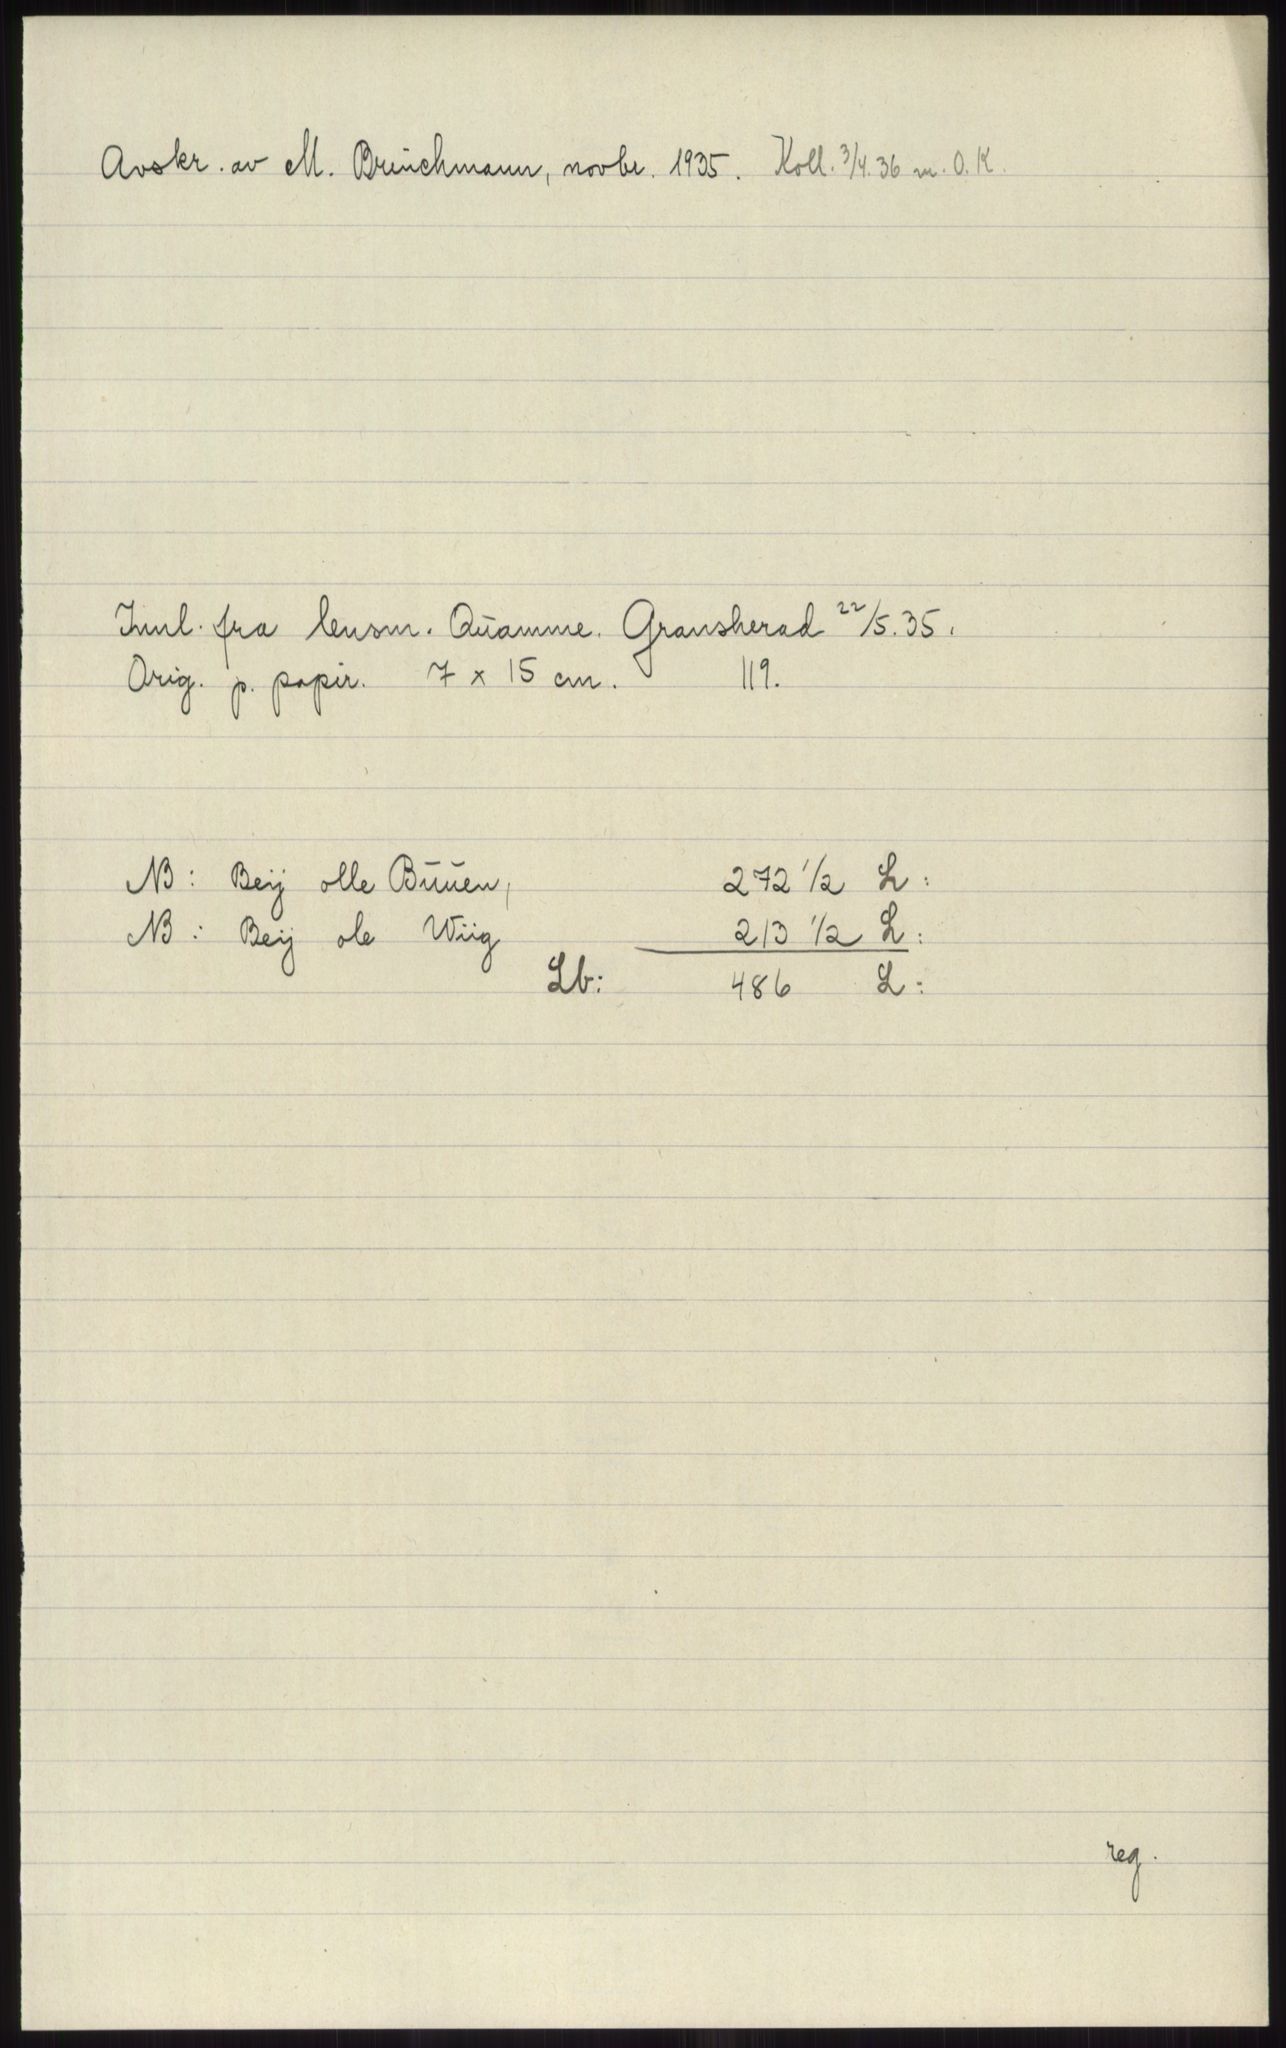 Avskr. av M. Brinchmann, novbr. 1935. Koll. 3/4. 36 m. O. K.
Innl. fra lensm. Quamme. Gransherad 22/5. 35.
Orig. p. papir. 7 x 15 cm. 119.
NB: Beij olle Buuen, 272 1/2 L:
NB: Beij ole Wiig 213 1/2 L:
Lb: 486 L:
reg.